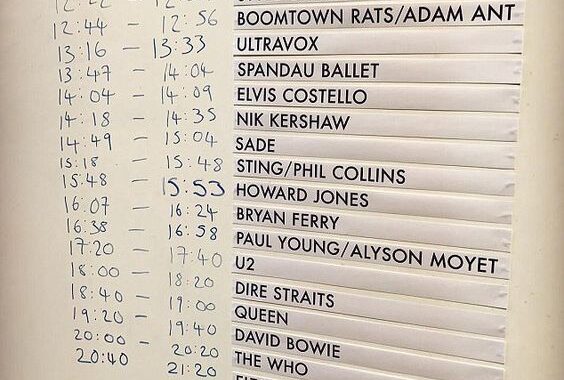 12:44 – 12:56 BOOMTOWN RATS/ADAM ANT
13:16 – 13:33 ULTRAVOX
13:47 – 14:04 SPANDAU BALLET
14:04 – 14:09 ELVIS COSTELLO
14:18 – 14:35 NIK KERSHAW
14:49 – 15:04 SADE
15:18 – 15:48 STING/PHIL COLLINS
15:48 – 15:53 HOWARD JONES
16:07 – 16:24 BRYAN FERRY
16:38 – 16:58 PAUL YOUNG/ALYSON MOYET
17:20 – 17:40 U2
18:00 – 18:20 DIRE STRAITS
18:40 – 19:00 QUEEN
19:20 – 19:40 DAVID BOWIE
20:00 – 20:20 THE WHO
20:40 21:20